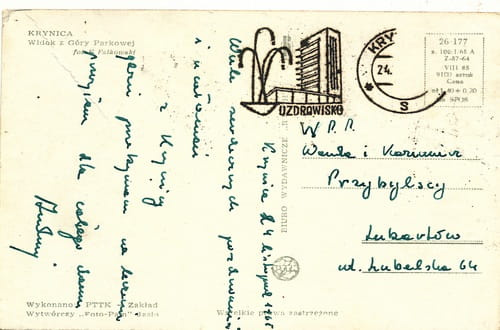 KRYNICA
Widok z Góry Parkowej
fot. E. Falkowski
UZDROWISKO
KRY
24.
S
26-177
z. 100-1 65 A
Z-87-64
VIII 65
9100 sztuk
Cena
zł 1,40 + 0,20
na SFOS
Krynica 24 listopad 1965
Wiele serdecznych pozdrowień
i uściśnień
z Krynicy
gdzie przebywam na
dla całego domu
BIURO WYDAWNICZE
W.P.P.
Wanda i Kazimierz
Przybylscy
Lubartów
ul. Lubelska 64
Wykonano: PTTK - Zakład
Wytwórczy „Foto-Pam" Jasło
Wszelkie prawa zastrzeżone